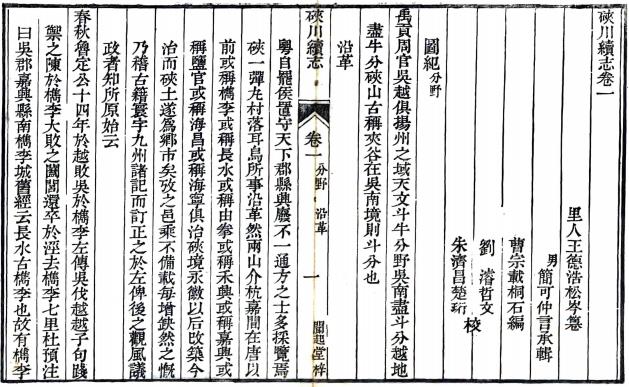 硤川續志卷一
里人王德浩松岑纂
男簡可仲言承輯
曹宗載桐石編
劉濬哲文
朱濟昌楚珩
校
圖紀分野
禹貢周官吳越俱揚州之域天文斗牛分野吳南盡斗分越地
盡牛分硤山古稱夾谷在吳南境則斗分也
沿革
粵自罷侯置守天下郡縣興廢不一通方之士多採覽焉
硤川續志
卷一
分野 沿革
一
硤一彈丸村落耳烏所事沿革然兩山介杭嘉間在唐以
前或稱檇李或稱長水或稱由拳或稱禾興或稱嘉興或
稱鹽官或稱海昌或稱海寧俱治硤境永徽以后改築今
治而硤土遂爲鄉市矣攷之邑乘不備載每增缺然之慨
乃稽古籍寰宇九州諸記而訂正之於左俾後之觀風議
政者知所原始云
春秋魯定公十四年於越敗吳於檇李左傳吳伐越越子句踐
禦之陳於檇李大敗之闔閭還卒於陘去檇李七里杜預注
曰吳郡嘉興縣南檇李城舊經云長水古檇李也故有檇李